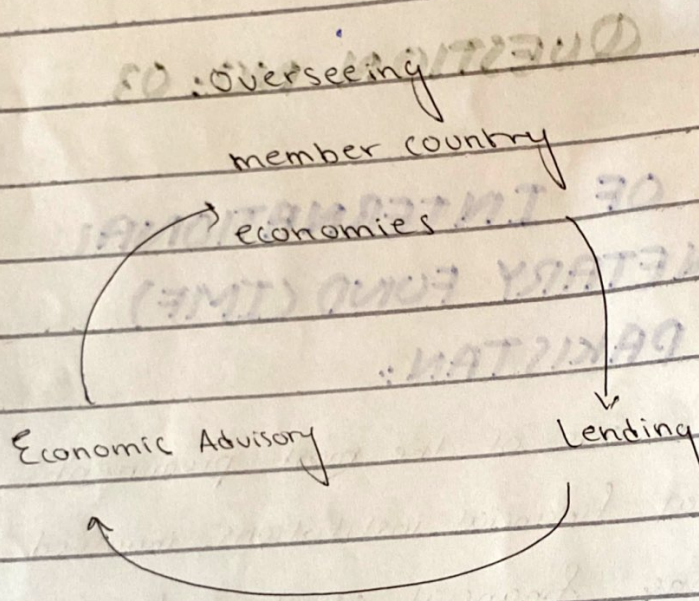 overseeing
member country
economies
Economic Advisory
Lending